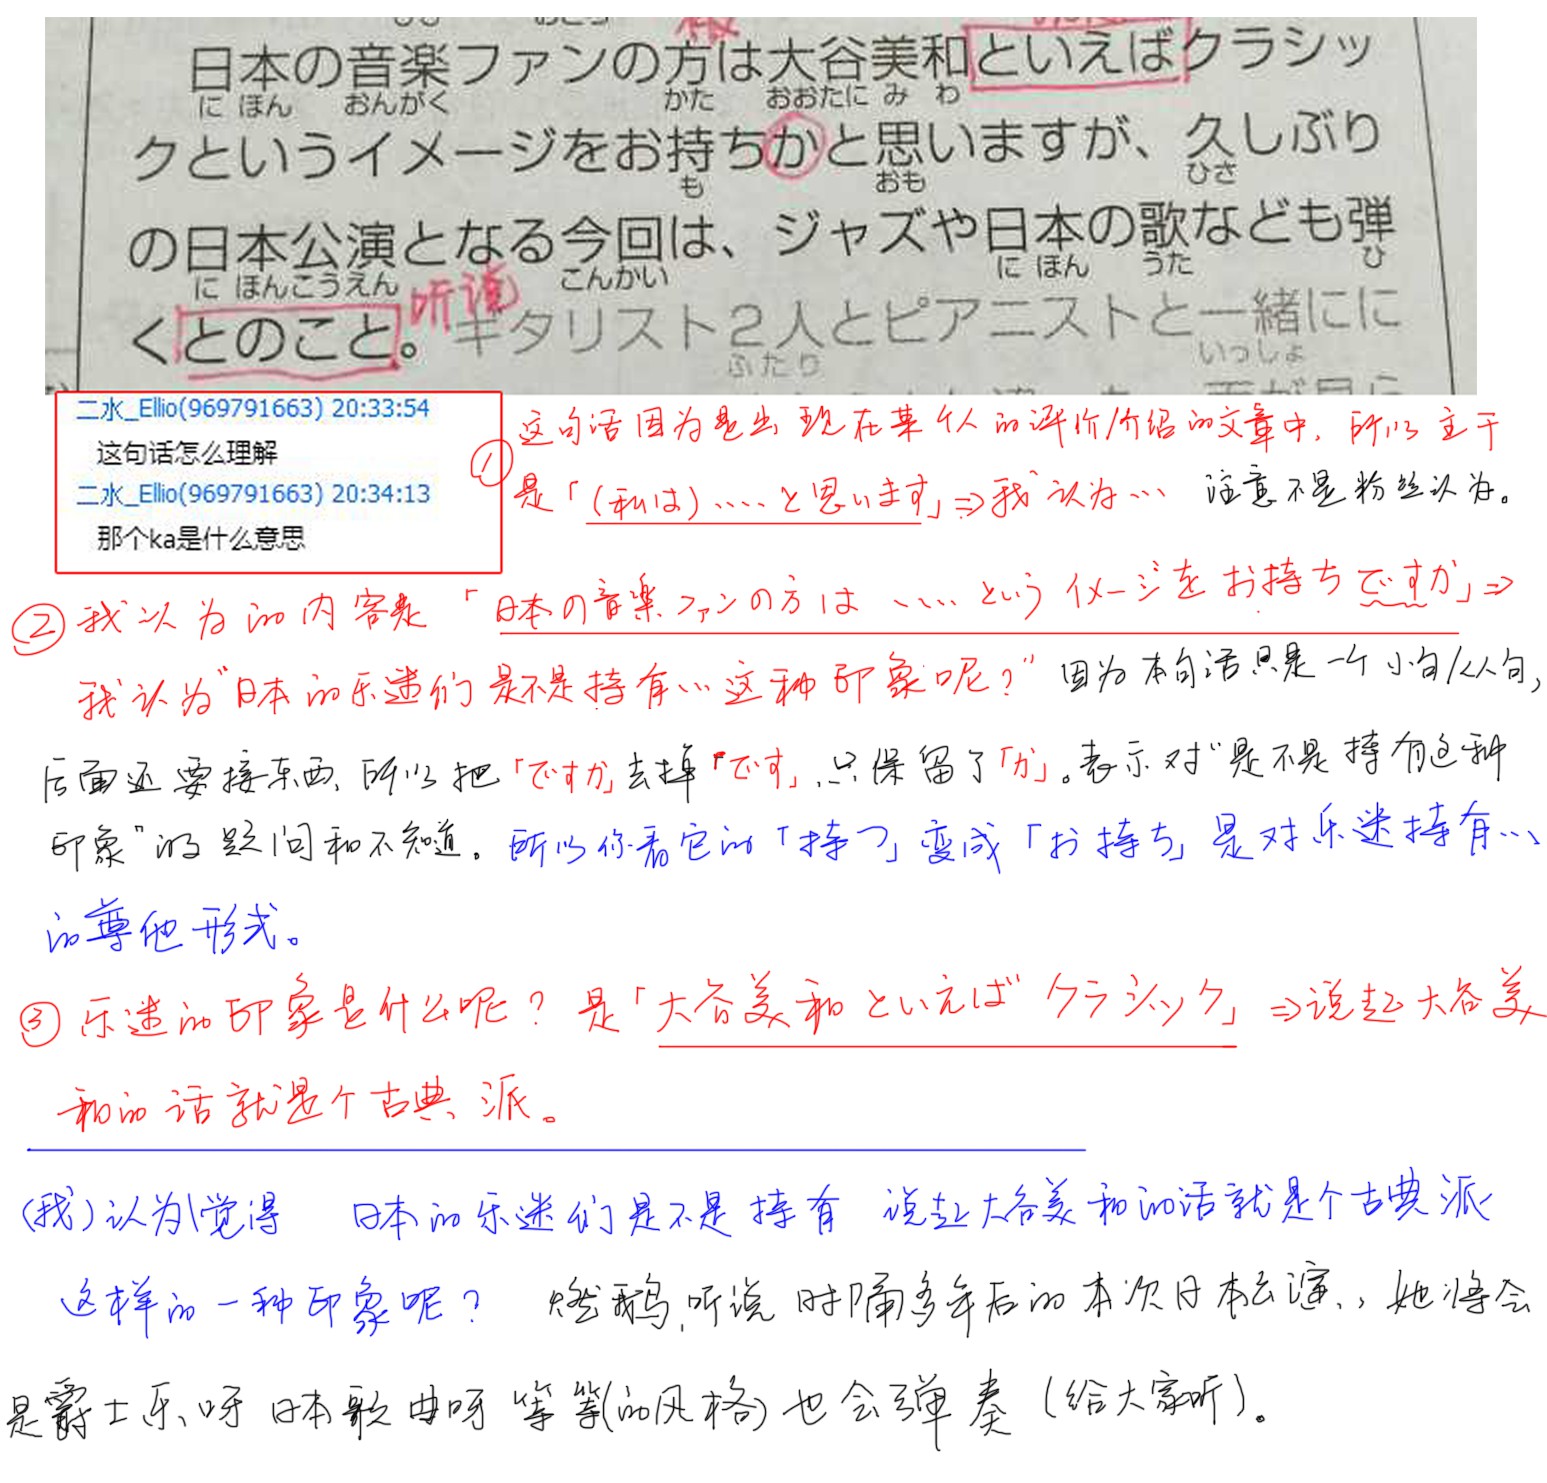 日本の音楽ファンの方は大谷美和といえばクラシッ
に ほん おんがく かた おおたに み わ
クというイメージをお持ちかと思いますが、久しぶり
も おも ひさ
の日本公演となる今回は、ジャズや日本の歌なども弾
に ほんこうえん こんかい に ほん うた ひ
くとのこと。ギタリスト2人とピアニストと一緒にに
听说
ふたり いっしょ
二水_Ellio(969791663) 20:33:54
这句话怎么理解
二水_Ellio(969791663) 20:34:13
那个ka是什么意思
① 这句话因为是出现在某个人的评价/介绍的文章中, 所以主干
是「(私は).....と思います」⇒我认为... 注意不是粉丝认为。
② 我以为的内容是「日本の音楽ファンの方は ..... という イメージを お持ち ですか」⇒
我认为"日本的乐迷们是不是持有...这种印象呢?" 因为本句话只是一个小句/从句,
后面还要接东西, 所以把「ですか」去掉「です」,只保留了「か」。表示对"是不是持有这种
印象"的疑问和不知道。所以你看它的「持つ」变成「お持ち」是对乐迷持有...
的尊他形式。
③ 乐迷的印象是什么呢? 是「大谷美和といえば クラシック」⇒说起大谷美
和的话就是个古典派。
(我)认为\觉得 日本的乐迷们是不是持有 说起大谷美和的话就是个古典派
这样的一种印象呢? 燃鹅,听说时隔多年后的本次日本公演,, 她将会
是爵士乐呀日本歌曲呀等等(的风格)也会弹奏(给大家听)。